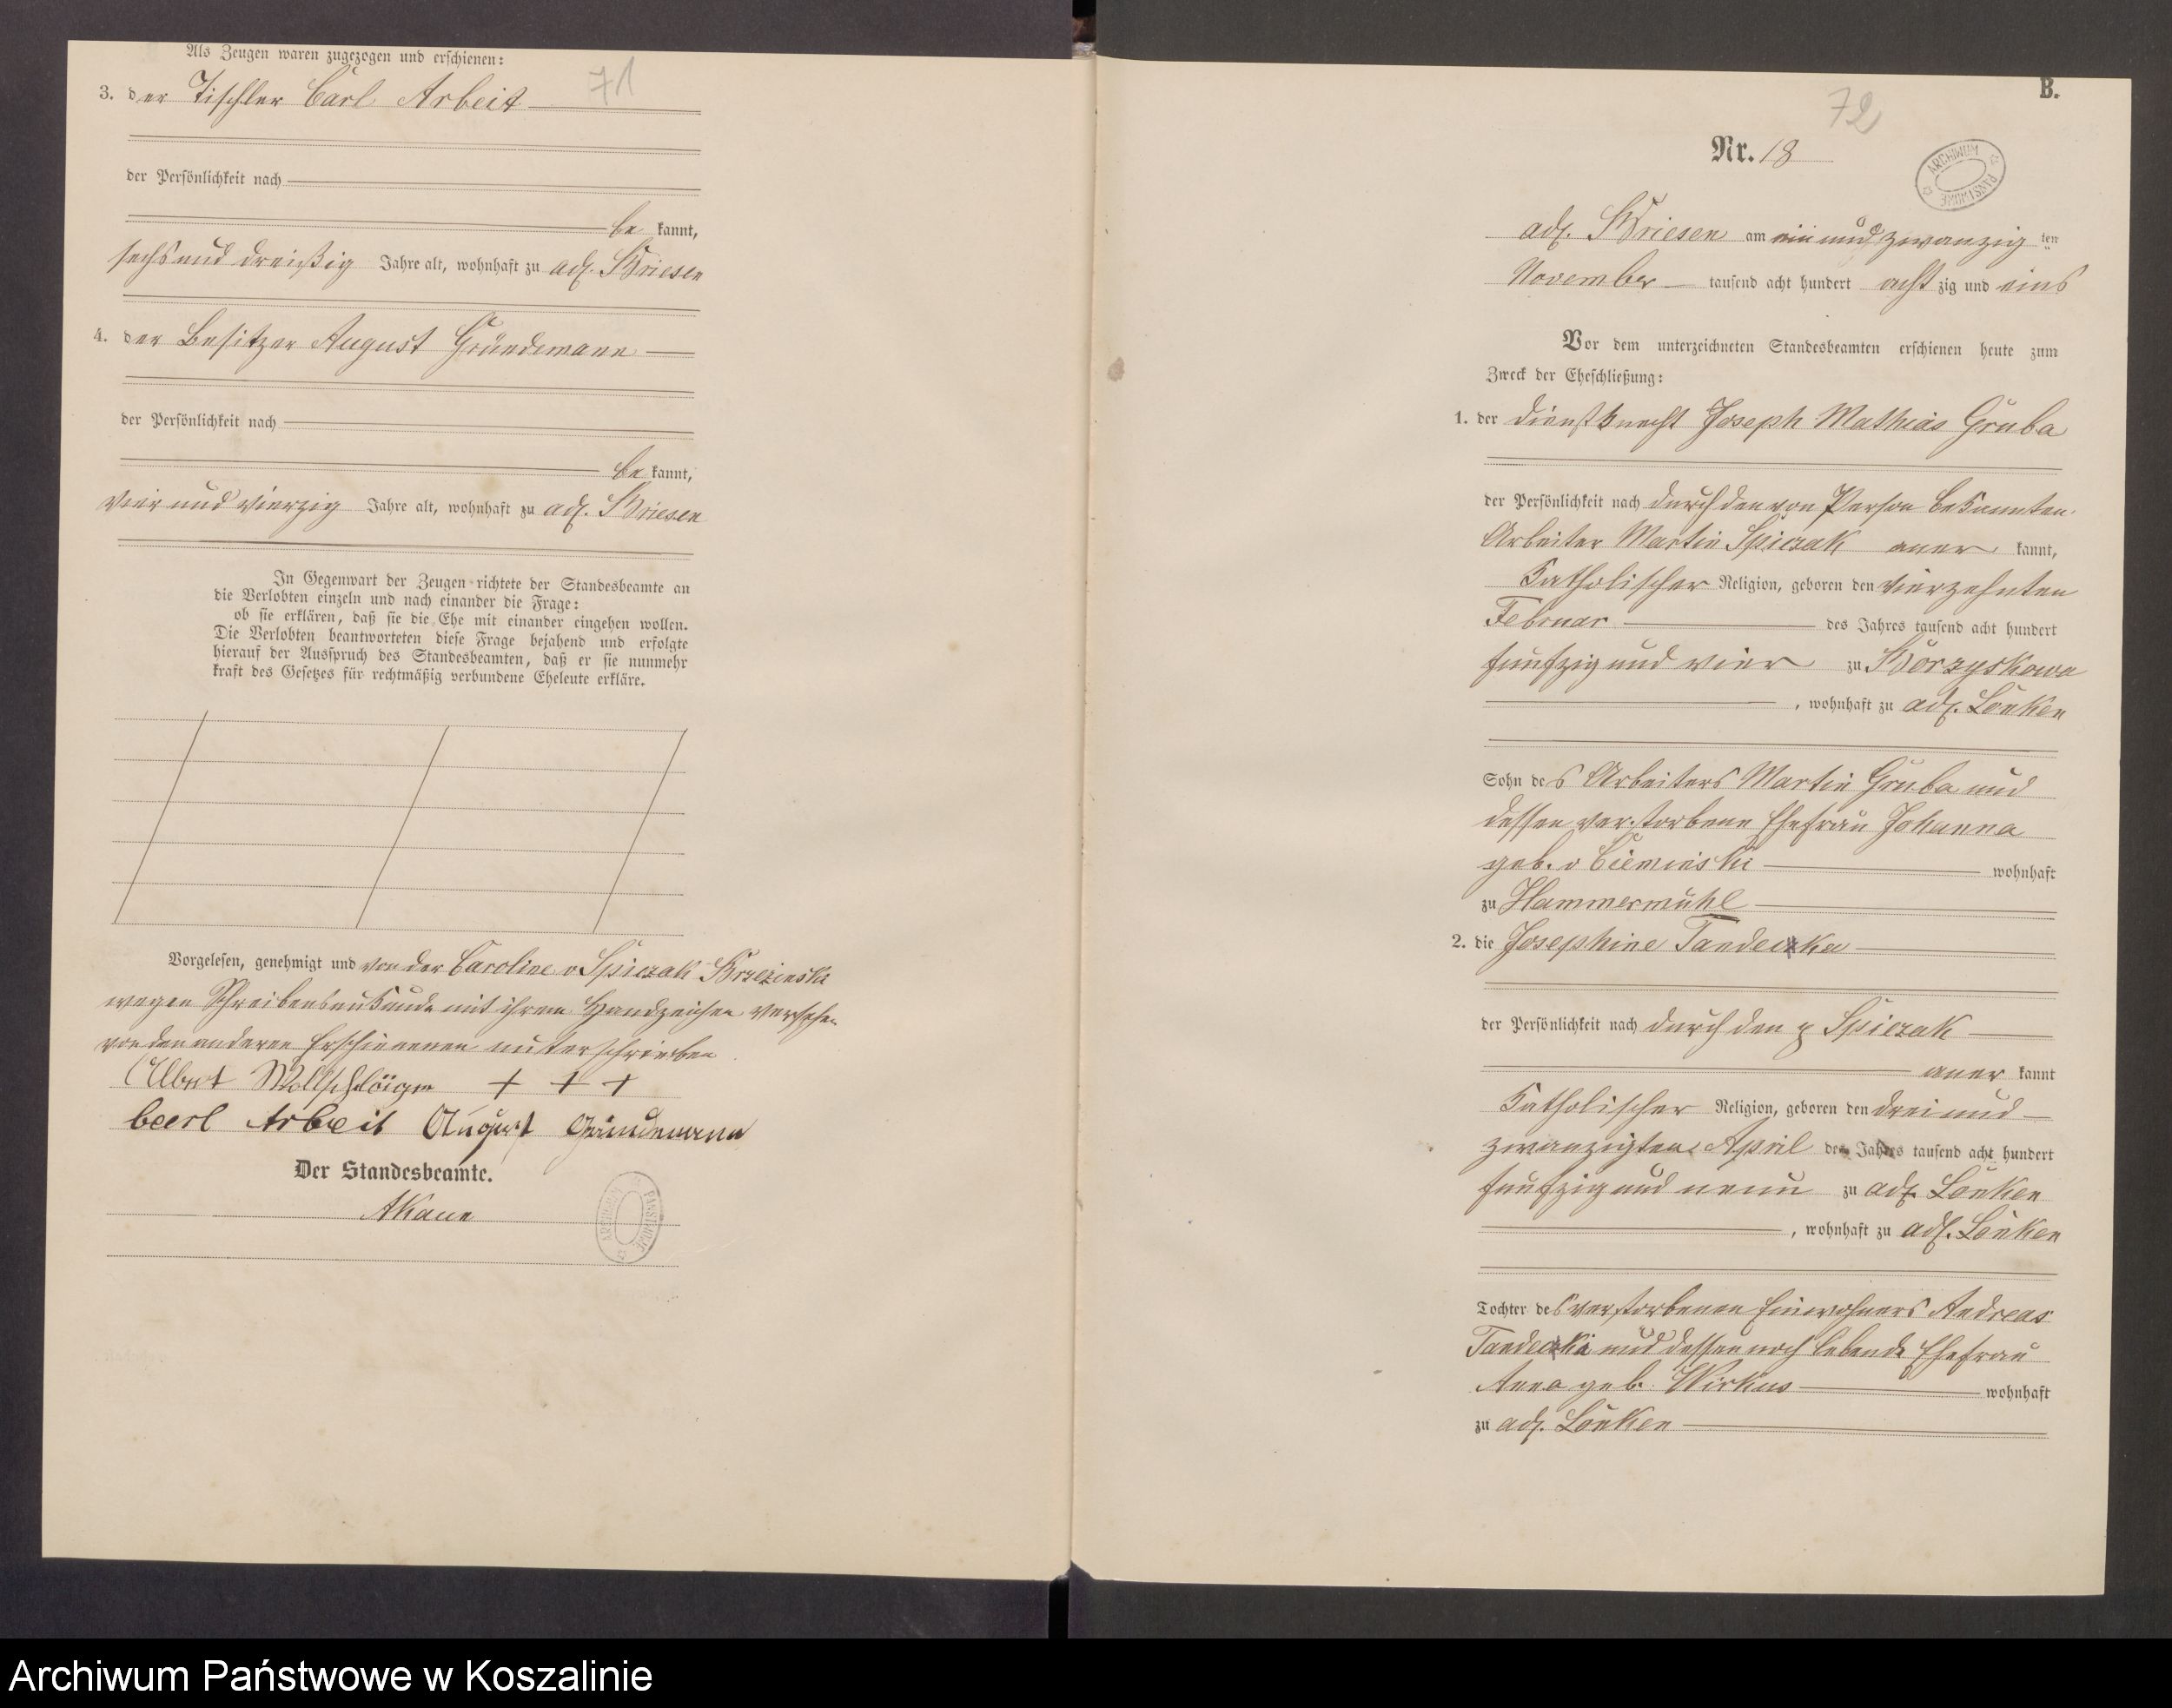 Als Zeugen waren zugezogen und erschienen:
71
3. der Tischler Carl Arbeit
der Persönlichkeit nach
be kannt,
sechs und dreißig Jahre alt, wohnhaft zu adl. Briesen
4. der Besitzer August Gründemann
der Persönlichkeit nach
be kannt,
vier und vierzig Jahre alt, wohnhaft zu adl. Briesen
In Gegenwart der Zeugen richtete der Standesbeamte an
die Verlobten einzeln und nach einander die Frage:
ob sie erklären, daß sie die Ehe mit einander eingehen wollen.
Die Verlobten beantworteten diese Frage bejahend und erfolgte
hierauf der Ausspruch des Standesbeamten, daß er sie nunmehr
kraft des Gesetzes für rechtmäßig verbundene Eheleute erkläre.
Vorgelesen, genehmigt und von der Caroline v Spiczak Brzezinska
wegen Schreibensunkunde mit ihrem Handzeichen versehen
von den anderen Erschienenen unterschrieben
Albert Wollschläger + + +
Carl Arbeit August Gründemann
Der Standesbeamte.
AKaun
ARCHIWUM PAŃSTWOWE
B.
72
Nr. 18
ARCHIWUM PAŃSTWOWE
adl. Briesen am ein und zwanzig ten
November tausend acht hundert acht zig und eins
Vor dem unterzeichneten Standesbeamten erschienen heute zum
Zweck der Eheschließung:
1. der Dienstknecht Joseph Mathias Gruba
der Persönlichkeit nach durch den von Person bekannten
Arbeiter Martin Spiczak aner kannt,
Katholischer Religion, geboren den vierzehnten
Februar des Jahres tausend acht hundert
fünfzig und vier zu Borzyskowa
, wohnhaft zu adl. Lonken
Sohn des Arbeiters Martin Gruba und
dessen verstorbene Ehefrau Johanna
geb. v Cieminski wohnhaft
zu Hammermühl
2. die Josephine Tandecka
der Persönlichkeit nach durch den p Spiczak
aner kannt
Katholischer Religion, geboren den drei und
zwanzigten April des Jahres tausend acht hundert
fünfzig und neun zu adl. Lonken
, wohnhaft zu adl. Lonken
Tochter des verstorbenen Einwohners Andreas
Tandecki und dessen noch lebende Ehefrau
Anna geb. Wirkus wohnhaft
zu adl. Lonken
Archiwum Państwowe w Koszalinie